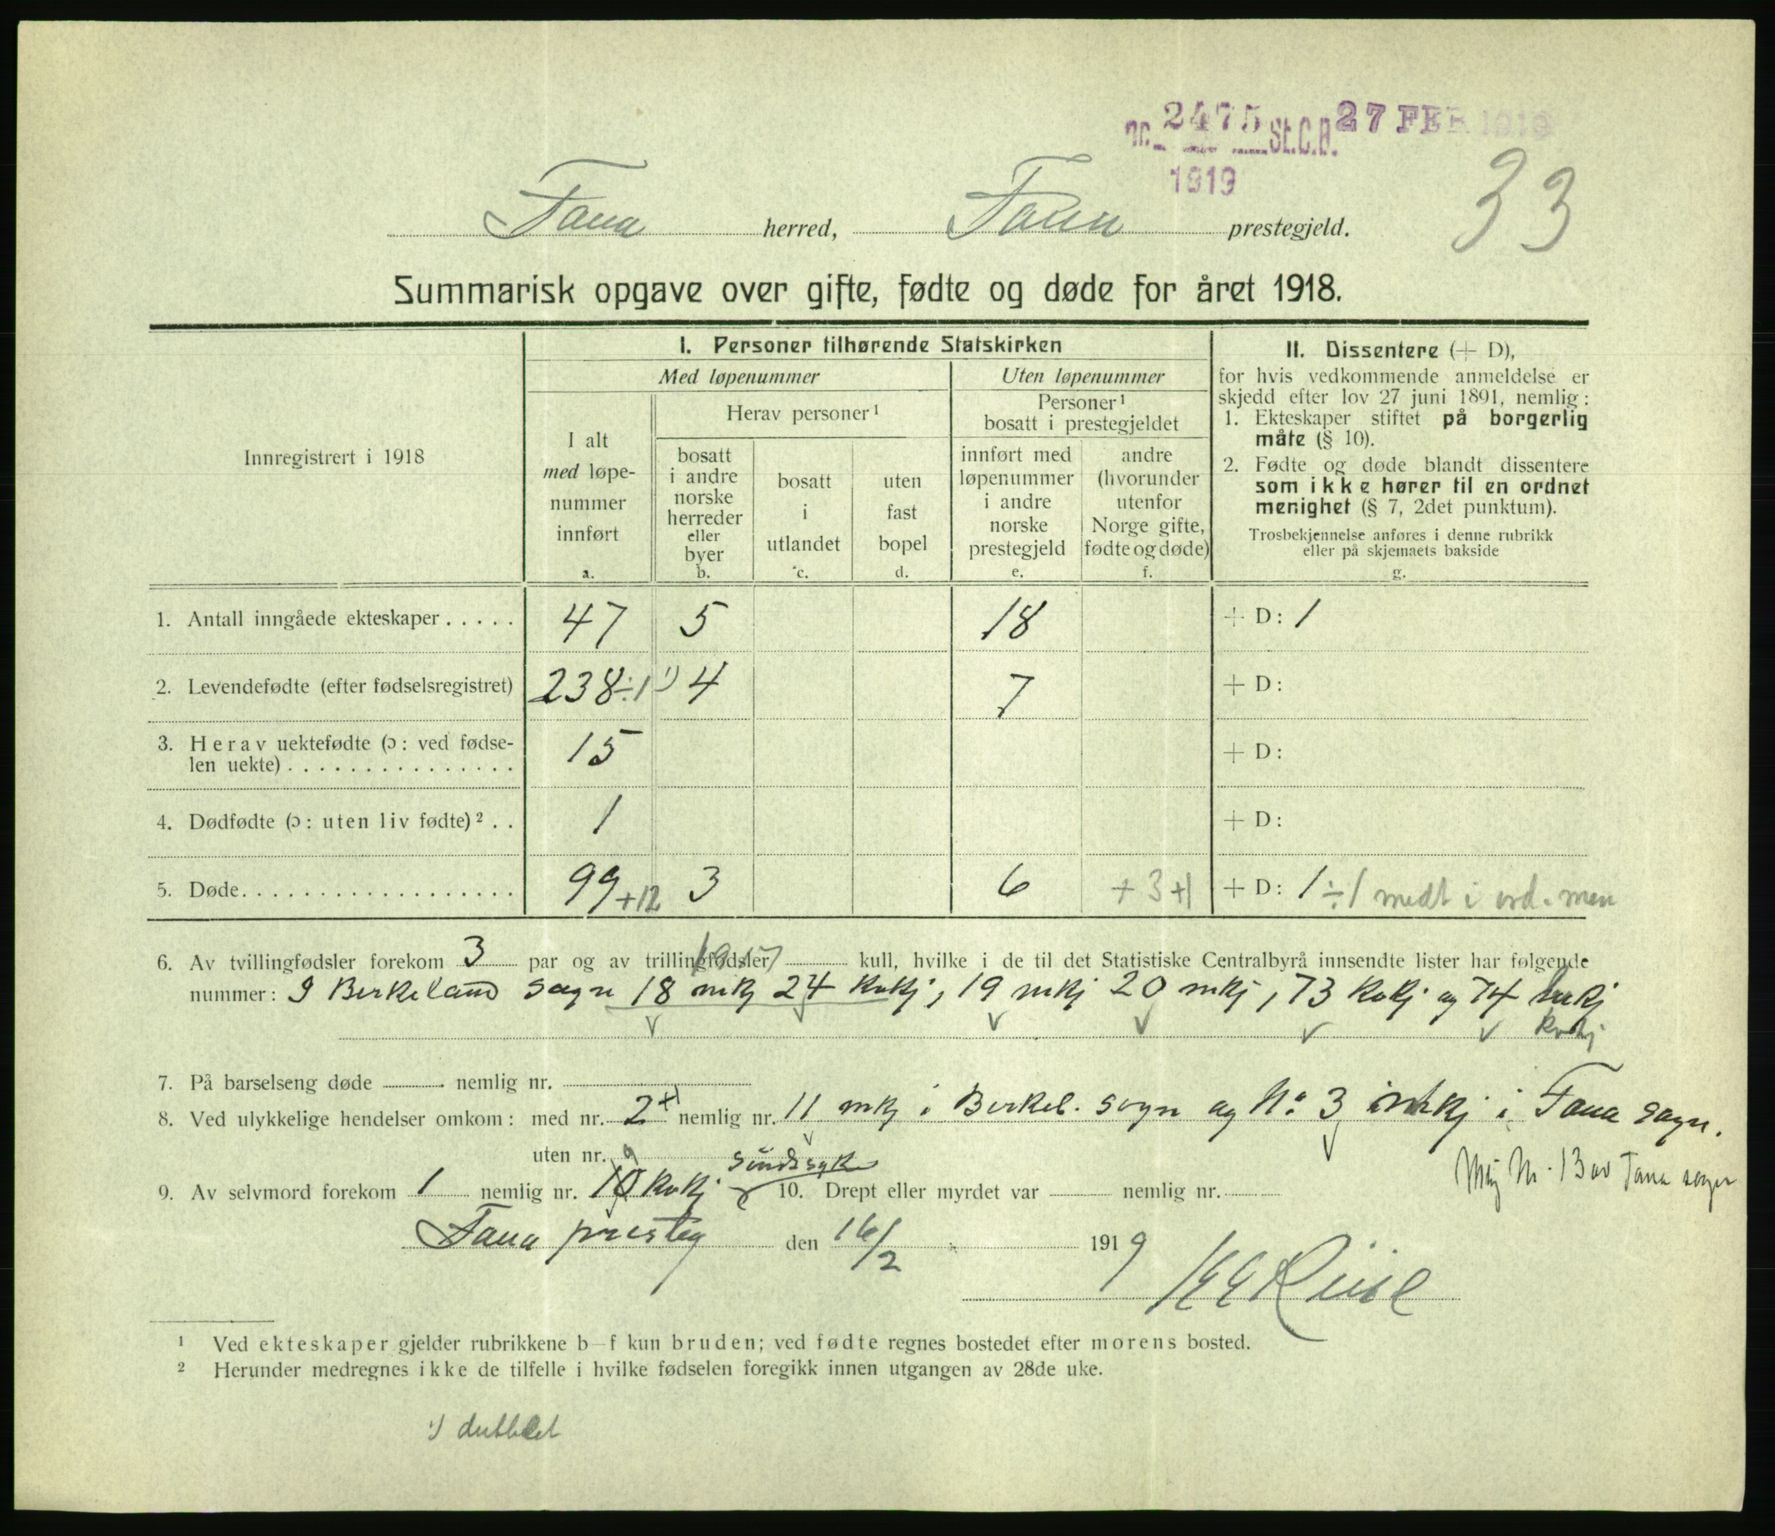 nr. 2475 St.C.B. 27 FEB 1919
1919
33
Fana herred, Fana prestegjeld.
Summarisk opgave over gifte, fødte og døde for året 1918.
Innregistrert i 1918
I. Personer tilhørende Statskirken
Med løpenummer
Uten løpenummer
I alt
med løpe-
nummer
innført
a.
Herav personer¹
bosatt
i andre
norske
herreder
eller
byer
b.
bosatt
i
utlandet
c.
uten
fast
bopel
d.
Personer¹
bosatt i prestegjeldet
innført med
løpenummer
i andre
norske
prestegjeld
e.
andre
(hvorunder
utenfor
Norge gifte,
fødte og døde)
f.
II. Dissentere (+ D),
for hvis vedkommende anmeldelse er
skjedd efter lov 27 juni 1891, nemlig:
1. Ekteskaper stiftet på borgerlig
måte (§ 10).
2. Fødte og døde blandt dissentere
som ikke hører til en ordnet
menighet (§ 7, 2det punktum).
Trosbekjennelse anføres i denne rubrikk
eller på skjemaets bakside
g.
1. Antall inngåede ekteskaper . . . . . 47 5 18 + D: 1
2. Levendefødte (efter fødselsregistret) 238 ÷1 ¹) 4 7 + D:
3. Herav uektefødte (ɔ: ved fødse-
len uekte) . . . . . . . . . . . . . . . 15 + D:
4. Dødfødte (ɔ: uten liv fødte)² . . 1 + D:
5. Døde. . . . . . . . . . . . . . . . . . 99 +12 3 6 + 3 +1 + D: 1 ÷1 medt i ord. men
6. Av tvillingfødsler forekom 3 par og av trillingfødsler kull, hvilke i de til det Statistiske Centralbyrå innsendte lister har følgende
nummer: I Birkeland sogn 18 mkj 24 kvkj, 19 mkj 20 mkj, 73 kvkj og 74 mkj
kvkj
7. På barselseng døde nemlig nr.
8. Ved ulykkelige hendelser omkom: med nr. 2 +1 nemlig nr. 11 mkj i Birkel. sogn og No 3 mkj i Fana sogn.
uten nr.
Nr. 13 av Fana sogn
9
sindssyk
9. Av selvmord forekom 1 nemlig nr. 10 kvkj 10. Drept eller myrdet var nemlig nr.
Fana presteg den 16/2 1919
Riise
¹ Ved ekteskaper gjelder rubrikkene b–f kun bruden; ved fødte regnes bostedet efter morens bosted.
² Herunder medregnes ikke de tilfelle i hvilke fødselen foregikk innen utgangen av 28de uke.
¹) dubblet